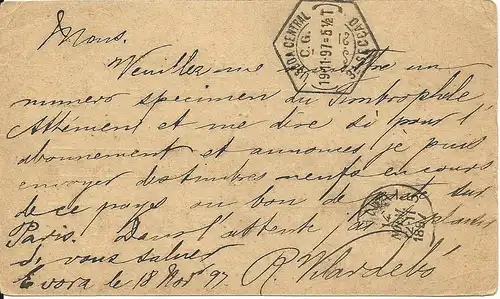 Mons.
Veuillez me remettre un
numero specimen du Timbrophile
Attément et me dire si pour l'
abonnement et annonces je puis
envoyer des timbres neufs en cours
de ce pays ou bon de poste sur
Paris. Dans l'attente
vous saluer
Evora le 18 Nov 97. R. Vilardebó
LISBOA CENTRAL
C.G.